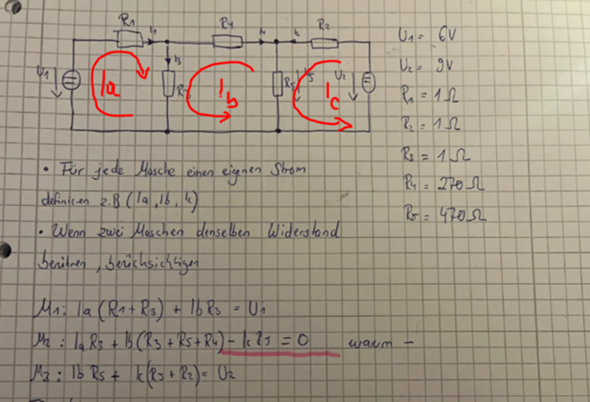 R1
I1
R4
I4
I2
R2
U1
I3
R3
R5
I5
U2
Ia
Ib
Ic
U1 = 6V
U2 = 9V
R1 = 1 Ω
R2 = 1 Ω
R3 = 1 Ω
R4 = 270 Ω
R5 = 470 Ω
• Für jede Masche einen eignen Strom
definieren z.B (Ia, Ib, Ic)
• Wenn zwei Maschen denselben Widerstand
berühren, berücksichtigen
M1: Ia (R1 + R3) + Ib R3 = U1
M2: Ia R3 + Ib (R3 + R5 + R4) - Ic R5 = 0 warum -
M3: Ib R5 + Ic (R5 + R2) = U2